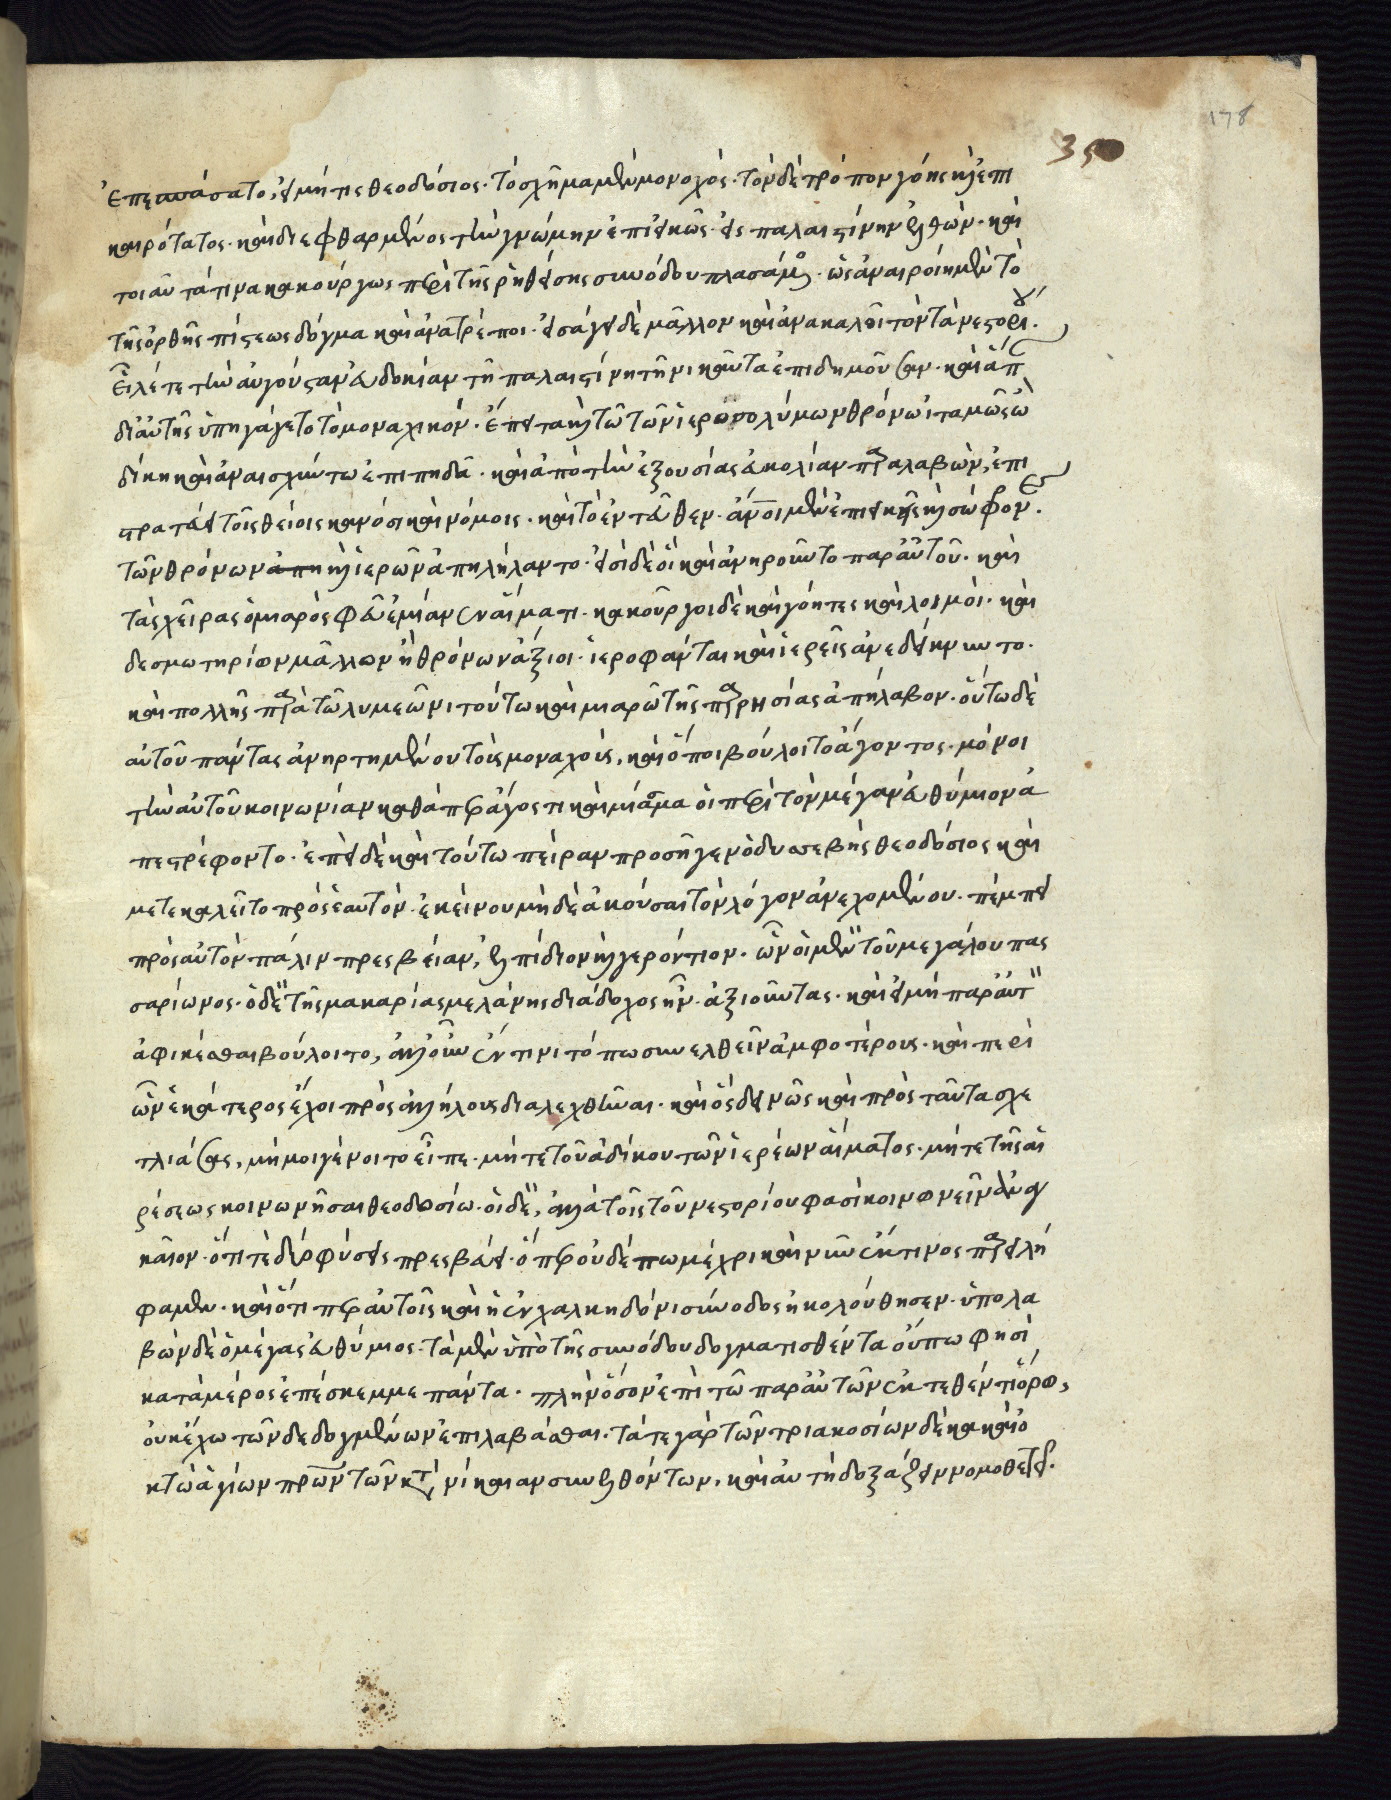 178
350
ἐπεισπάσατο, εἰ μή τις θεοδόσιος· τὸ σχῆμα μὲν μοναχός· τὸν δὲ τρόπον γόης καὶ ἐπι
καιρότατος· καὶ διεφθαρμένος τὴν γνώμην ἐπιεικῶς· εἰς παλαιστίνην ἐλθών· καὶ
τοιαῦτά τινα κακούργως περὶ τῆς ῥηθείσης συνόδου πλασάμενος· ὡς ἀναιροίη μὲν τὸ
τῆς ὀρθῆς πίστεως δόγμα καὶ ἀνατρέποι· εἰσάγει δὲ μᾶλλον καὶ ἀνακαλεῖ τὸν τὰ νεστορίου.
εἷλέ τε τὴν αὐγούσταν εὐδοκίαν τῇ παλαιστίνῃ τηνικαῦτα ἐπιδημοῦσαν· καὶ ἅπαν
δι αὐτῆς ὑπηγάγετο τὸ μοναχικόν· ἔπειτα καὶ τῷ τῶν ἱεροσολύμων θρόνῳ ἰταμῶς ὦ
δίκη καὶ ἀναισχύντως ἐπιπηδᾷ· καὶ ἀπὸ τὴν ἐξουσίας εὐκολίαν παραλαβὼν, ἐπι
στρατεύει τοῖς θείοις κανόσι καὶ νόμοις· καὶ τὸ ἐντεῦθεν· ἄνθρωποι μὲν ἐπιεικεῖς καὶ σώφρονες.
τῶν θρόνων καὶ ἱερῶν ἀπηλήλαντο· εἰσὶ δὲ οἳ καὶ ἀνῃροῦντο παρ αὐτοῦ· καὶ
τὰς χεῖρας ὁ μιαρὸς φεῦ ἐμίανεν αἵματι· κακοῦργοι δὲ καὶ γόητες καὶ λοιμοί· καὶ
δεσμωτηρίων μᾶλλον ἢ θρόνων ἄξιοι· ἱεροφάνται καὶ ἱερεῖς ἀνεδείκνυντο.
καὶ πολλῆς παρὰ τῷ λυμεῶνι τούτῳ καὶ μιαρῷ τῆς παρρησίας ἀπήλαβον· οὕτω δὲ
αὐτοῦ πάντας ἀνηρτημένου τοὺς μοναχούς, καὶ ὅποι βούλοιτο ἄγοντος· μόνοι
τὴν αὐτοῦ κοινωνίαν καθάπερ ἄγος τι καὶ μίασμα οἱ περὶ τὸν μέγαν εὐθύμιον ἀ
πεστρέφοντο· ἐπεὶ δὲ καὶ τούτῳ πεῖραν προσῆγεν ὁ δυσσεβὴς θεοδόσιος καὶ
μετεκαλεῖτο πρὸς ἑαυτὸν· ἐκείνου μηδὲ ἀκοῦσαι τὸν λόγον ἀνεχομένου· πέμπει
πρὸς αὐτὸν πάλιν πρεσβείαν, ἐλπίδιον καὶ γερόντιον· ὧν ὁ μὲν τοῦ μεγάλου πας
σαρίωνος· ὁ δὲ τῆς μακαρίας μελάνης διάδοχος ἦν· ἀξιοῦντας· καὶ εἰ μὴ παρ αὐτὸν
ἀφικέσθαι βούλοιτο, ἀλλ οὖν ἔν τινι τόπῳ συνελθεῖν ἀμφοτέρους· καὶ περὶ
ὧν ἑκάτερος ἔχοι πρὸς ἀλλήλους διαλεχθῆναι· καὶ ὃς δεινῶς καὶ πρὸς ταῦτα σχε
τλιάσας, μή μοι γένοιτο εἶπε· μήτε τοῦ ἀδίκου τῶν ἱερέων αἵματος· μήτε τῆς αἱ
ρέσεως κοινωνῆσαι θεοδοσίῳ· οἱ δὲ, ἀλλὰ τοῖς τοῦ νεστορίου φασὶ κοινωνεῖν ἀναγ
καῖον· ὅτι τὲ δύο φύσεις πρεσβεύει· ὅπερ οὐδέπω μέχρι καὶ νῦν ἔκ τινος παρειλή
φαμεν· καὶ ὅτι περ αὐτοῖς καὶ ἡ ἐν χαλκηδόνι σύνοδος ἠκολούθησεν· ὑπολα
βὼν δὲ ὁ μέγας εὐθύμιος· τὰ μὲν ὑπὸ τῆς συνόδου δογματισθέντα οὔπω φησὶ
κατὰ μέρος ἐπέσκεμμαι πάντα· πλὴν ὅσον ἐπὶ τῷ παρ αὐτῶν ἐκτεθέντι ὅρῳ,
οὐκ ἔχω τῶν δεδογμένων ἐπιλαβέσθαι· τά τε γὰρ τῶν τριακοσίων δέκα καὶ ὀ
κτὼ ἁγίων πατέρων τῶν κατὰ νίκαιαν συνελθόντων, καὶ αὐτὴ δοξάζειν νομοθετεῖ.